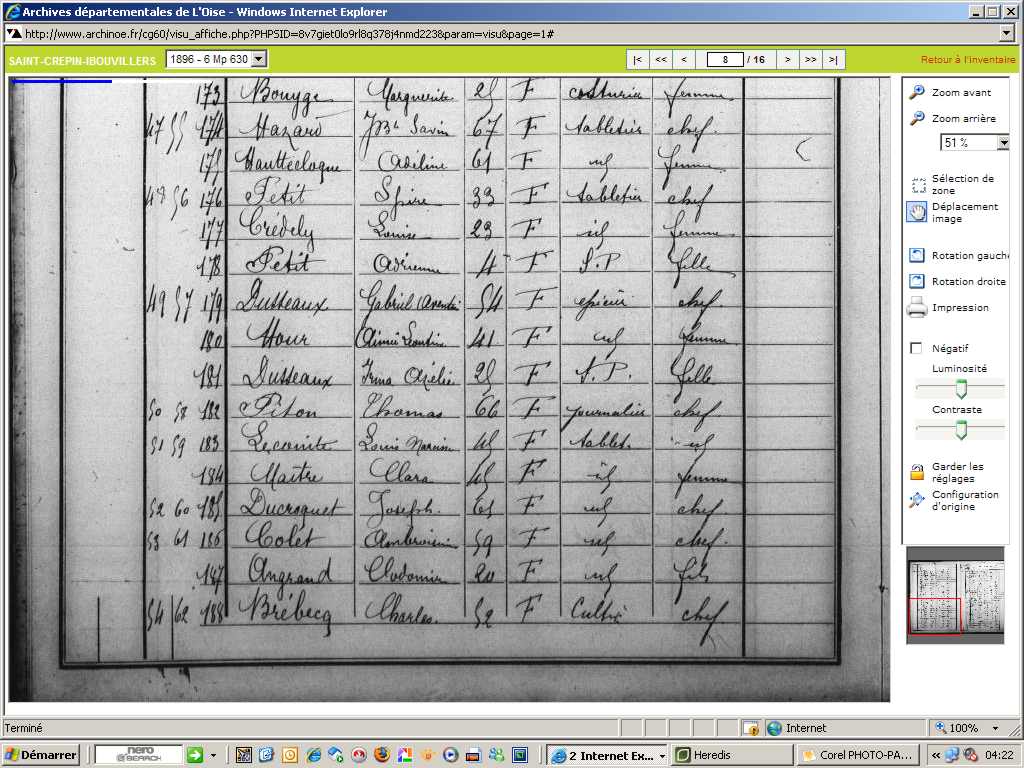 Archives départementales de L'Oise - Windows Internet Explorer
http://www.archinoe.fr/cg60/visu_affiche.php?PHPSID=8v7giet0lo9rl8q378j4nmd223&param=visu&page=1#
SAINT-CREPIN-IBOUVILLERS 1896 - 6 Mp 630 |< << < 8 / 16 > >> >| Retour à l'inventaire
173 Bouyge Marguerite 25 F couturière femme
47 55 174 Hazard JBte Savin 67 F tabletier chef
175 Hauttecloque Adéline 61 F id femme
48 56 176 Petit Spire 33 F tabletier chef
177 Crédely Louise 23 F id femme
178 Petit Adrienne 4 F S.P fille
49 57 179 Dusseaux Gabriel 54 F epicier chef
180 Hour Aimée Léontine 41 F id femme
181 Dusseaux Irma Azélie 25 F S.P. fille
50 58 182 Piton Thomas 66 F journalier chef
51 59 183 Lecomte Louis Narcisse 45 F tablet. id
184 Maitre Clara 45 F id femme
52 60 185 Ducroquet Joseph. 65 F id chef
53 61 186 Colet Ambroisine 59 F id chef.
187 Angrand Clodomir 20 F id fils
54 62 188 Brébecq Charles. 52 F Cultivr chef
Zoom avant
Zoom arrière
51 %
Sélection de
zone
Déplacement
image
Rotation gauche
Rotation droite
Impression
Négatif
Luminosité
Contraste
Garder les
réglages
Configuration
d'origine
Terminé Internet 100%
Démarrer nero SEARCH 2 Internet Ex... Heredis Corel PHOTO-PA... 04:22